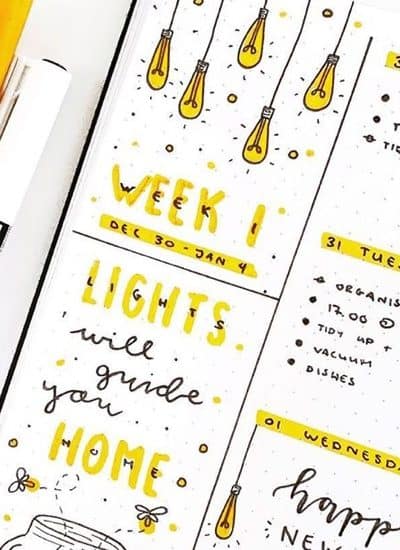 WEEK 1
DEC 30 - JAN 4
LIGHTS
will
guide
you
HOME
31 TUES
ORGANIS
17.00
TIDY UP +
VACUUM
DISHES
01 WEDNESDA
happ
NEW